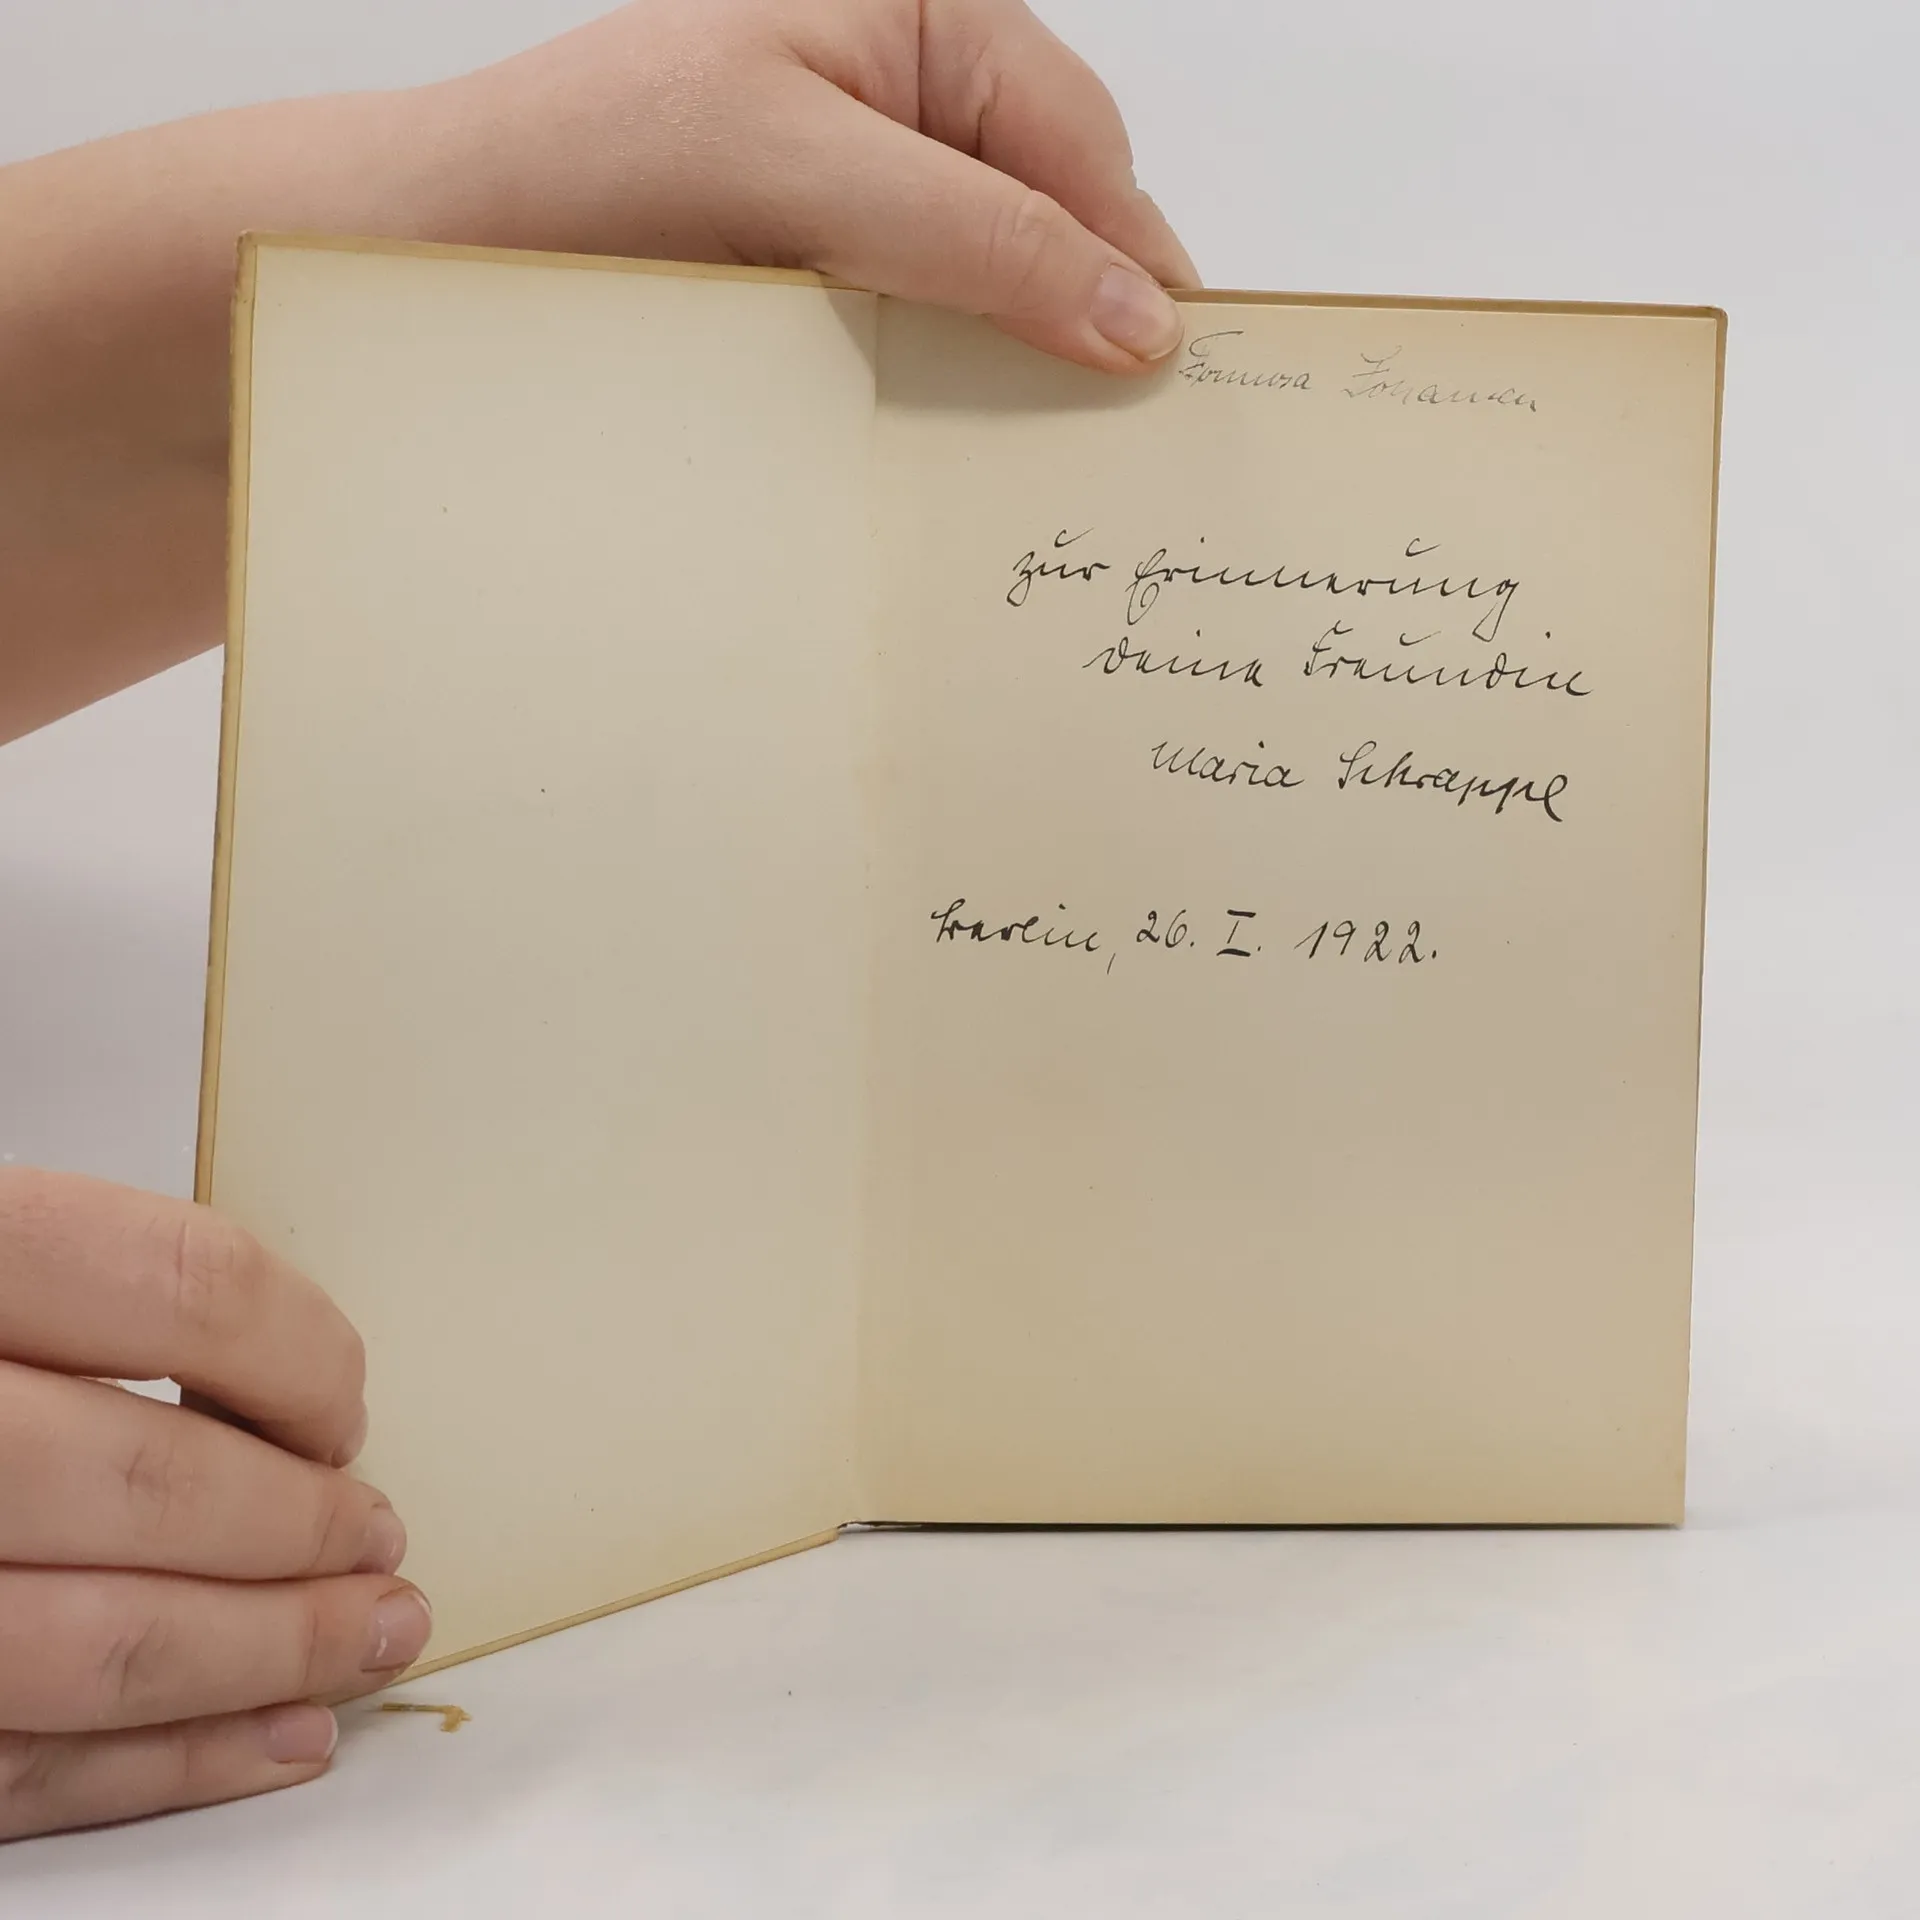 zur Erinnerung
deine Freundin
Maria Schrappe
Berlin, 26. I. 1922.